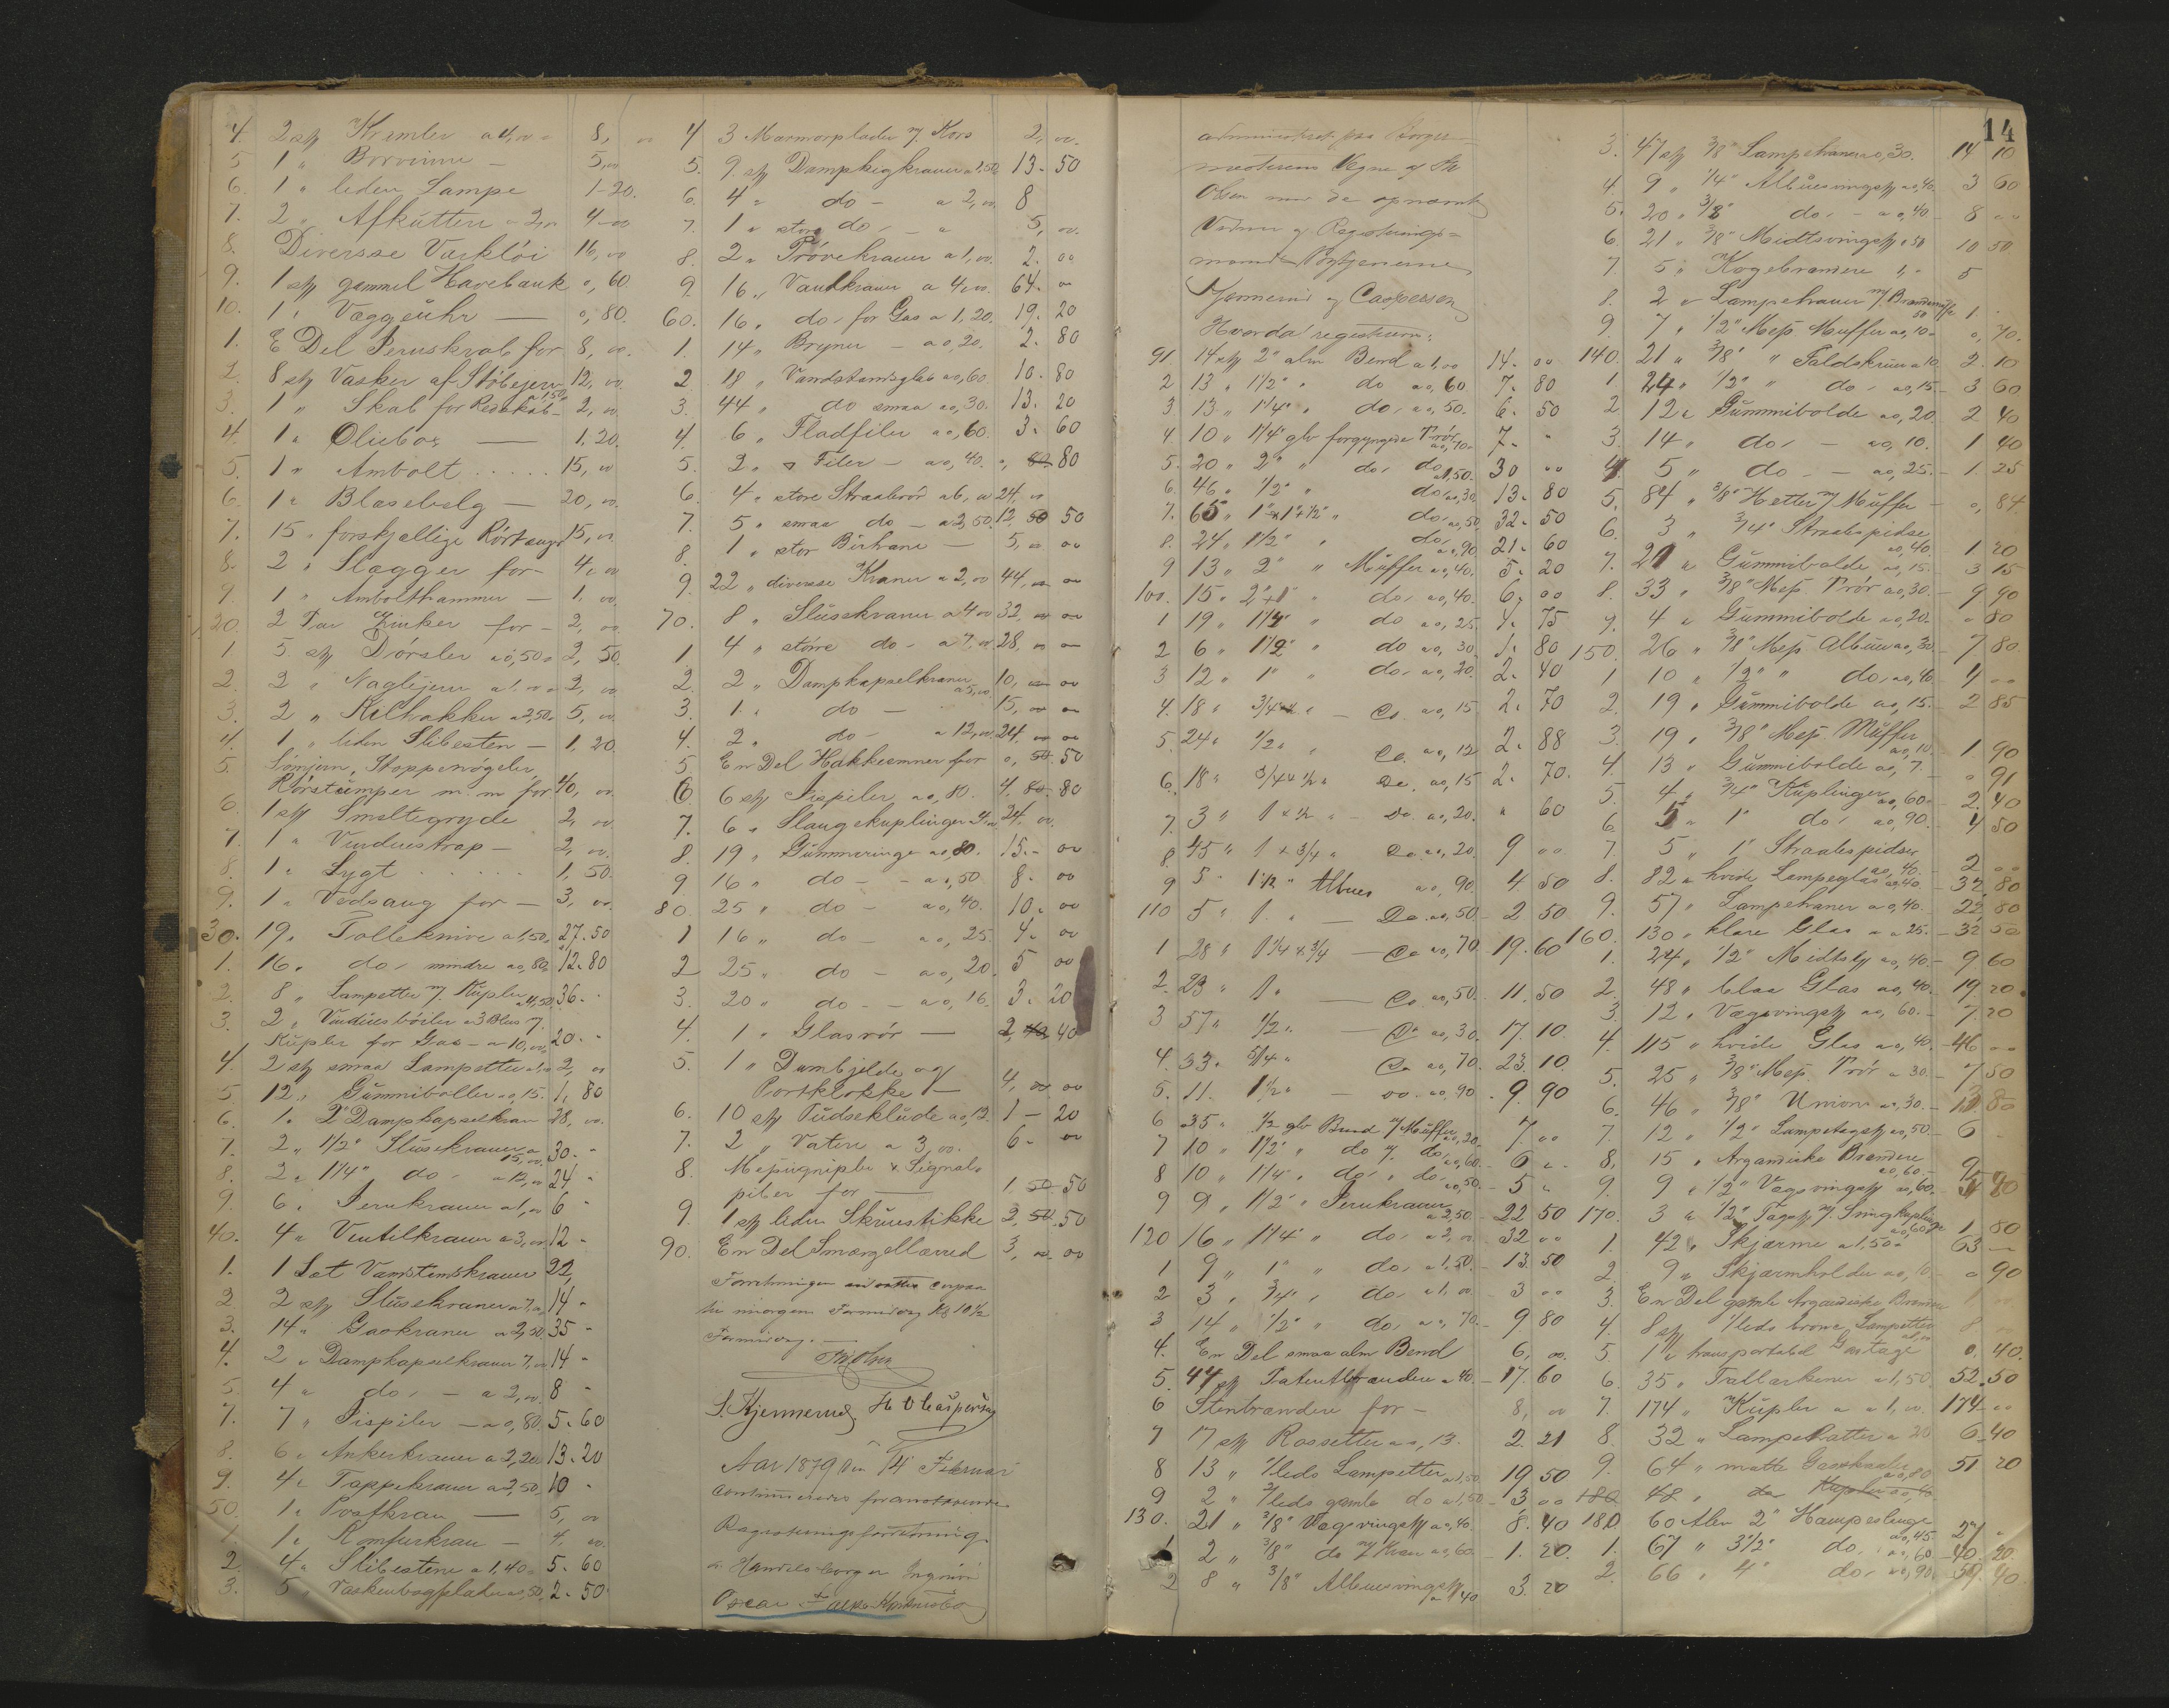 4. 2 stk Kramler a 4,00 - 8, 00
5 1 " Borvinne - 5, 00
6. 1 " liden Lampe 1-20.
7. 2 " Afkuttere a 2,00 4-00
8. Diversse Værktöi 16,00
9. 1 stk gammel Havebænk 0,60
10. 1 " Væggeuhr — 0,80.
1. E Del Jernskrab for 8,00.
2. 8 stk Vasker af Stöbejern a 1,50 12,00
3. 1 " Skab for Redskab - 2,00
4. 1 " Oliebox — 1.20.
5. 1 " Ambolt ..... 15,00
6. 1 " Blæsebelg — 20,00.
7. 15 " forskjellige Rörtænger 15,00
8. 2 " Slægger for - 4,00
9. 1 " Ambolthammer — 1,00.
20. 2 Par Zinker for - 2,00
1 5. stk Dörsler a 0,50 2,50.
2. 2 " Naglejern a 1.00 2,00
3. 2 " Kilhakker a 2,50 5,00.
4. 1 " liden Slibesten — 1.20
5. Lömjern, Stoppenögeler
Rörstumper m. m for 40,00.
6. 1 stk Smeltegryde 2,00
7. 1 " Vinduestrap — 2,00.
8. 1 " Lygt ...... 1,50.
9. 1 " Vedsaug for — 3,00.
30. 19 " Tolleknive a 1,50 27.50
1. 16. do, mindre a 0,80 12.80
2. 8 " Lampetter m. Kupler a 4,50 36 -
3. 2 " Vinduesböiler a 3 Blus m.
Kupler for Gas - a 10,00 20 -
4. 2 stk smaa Lampetter a 1,00 2,00
5. 12 " Gummiboller a 0,15. 1,80
6. 1. 2" Dampkapselkran 28,00.
7. 2 " 1 1/2" Slusekraner a 15,00 30 -
8. 2 " 1 1/4" do - a 12,00 24 -
9. 6 " Jernkraner a 1,00 6 -
40. 4 " Ventilkraner a 3,00 12 -
1. 1 Sæt Vandstandskraner 22,
2 2 stk Slusekraner a 7,00 14 -
3. 14 " Gaskraner a 2,50 35 -
4. 2 " Dampkapselkraner 7,00 14 -
5. 4 " do, - a 2,00 8 -
7. 7 " Pispiler — a 0,80 5.60
8. 6 " Ankerkraner a 2,20 13.20
9. 4 " Tappekraner a 2,50 10 -
50. 1 " Postkran — 5,00
1 1 " Komfurkran - 4,00.
2. 4 " Slibestene a 1,40 5.60
3. 5 " Vaskenbagplader a 0,50 2.50
4 3 Marmorplader m. Kors 2,00.
5. 9. stk Dampkegkraner a 1,50 13.50
6. 4 " do - a 2,00 8
7. 1 " store do, - a 5,00.
8. 2 " Prövekraner a 1,00. 2.00
9. 16 " Vandkraner a 4,00. 64.00
60. 16 " do, for Gas a 1,20. 19.20
1. 14 " Bryner - a 0,20. 2.80
2 18 " Vandstandsglas a 0,60 10.80
3. 44 " do smaa a 0,30. 13.20
4. 6 " Fladfiler a 0,60. 3.60
5. 2 " Δ Filer - a 0,40. 0, 80 80
6. 4 " store Straalerör a 6,00 24,00
7. 5 " smaa do - a 2,50. 12, 50 50
8. 1 " stor Börhane — 5, 00 00
9. 22 " diversse Kraner a 2,00 44, 00 00
70. 8 " Slusekraner a 4,00 32, 00 00
1 4 " större do - a 7,00 28, 00 00
2. 2 " Dampkapselkraner a 5,00 10, 00 00
3. 1 " do — 15, 00 00
4. 2 " do - a 12,00 24. 00 00
5 En Del Hakkeemner for 0, 50. 50
6 6 stk Pispiler a 0,80. 4. 80. 80
7. 6 " Slangekuplinger 4,00 24. 00.
8. 19 " Gummeringe a 0,80. 15. - 00
9 16 " do - - a 0,50 8. 00
80. 25 " do - a 0,40. 10. 00
1 16 " do - a 0,25. 4. 00
2 25 " do - a 0,20. 5 00
3. 20 " do - - a 0,16. 3. 20
4. 1 " Glasrör — 2, 40 40
5. 1 " Dambjelde og
Portklokke — 4, 00 00
6. 10 stk Pudseklude a 0,12. 1 - 20
7. 2 " Vatere a 3,00. 6 - 00
8. Messingnipler & Signal-
piber for — 1, 50. 50
9. 1 stk liden Skruestikke 2, 50. 50
90. En Del Smergellærred 3, 00. 00
Forretningen
til imorgen Formiddag Kl 10 1/2
Formiddag. —
Th. Olsen
S. Hjemmerud H O Casperssen
Aar 1879 den 14 Februar
continueredes foranstaaende
Registreringsforretning
Handelsborger Ingeniör
Oscar
administret. paa Borger-
mesterens Vegne af Th
Olsen med de opnævnte
Vidner og Registrerings-
mænd Politjenerne
Hjemmerud og Casperssen
Hvorda registreres:
91. 14 stk 2" alm Bend a 1,00 14.00
2 13 " 1 1/2" " do a 0,60 7.80
3 13 " 1 1/4" " do, a 0,50. 6.50
4. 10 " 1 1/4" glv forgyngede Trör a 0,70. 7. "
5. 20 " 2" " do, do a 1,50. 30 00
6. 46 " 1/2" " do, a 0,30. 13.80
7. 65 " 1" x 1 x 1/2" " do, a 0,50. 32.50
8. 24 " 1 1/2" " do, a 0,90 21.60
9 13 " 2" " Muffer a 0,40. 5.20
100. 15 " 2" x 1" " do, a 0,40. 6.00
1 19 " 1 1/4" " do a 0,25. 4.75
2 6 " 1 1/2" " do a 0,30. 1.80
3 12 " 1" " do, a 0,20. 2.40
4. 18 " 3/4" " — Do. a 0,15 2.70
5. 24 " 1/2 " Do. a 0,12 2.88
6. 18 " 3/4 x 1/2 " Do. a 0,15 2.70.
7. 3 " 1 x 1/2 " - Do. a 0,20. " 60
8. 45 " 1 x 3/4 " Do. a 0,20. 9 00
9 5 " 1 1/2 " Albues a 0,90. 4.50
110 5 " 1. " — Do. a 0,50. 2 50.
1 28 " 1 1/4 x 3/4 — Do a 0,70. 19.60
2. 23 " 1 " — Do. a 0,50. 11.50
3 57 " 1/2 " — Do a 0,30. 17.10.
4. 33 " 5/4 " Do a 0,70. 23.10.
5. 11. 1 1/2 " — Do. a 0,90 9.90
6 35 " 1/2 glv Bend m Muffer a 0,20. 7.00
7 10 " 1 1/2" " do m. do, a 0,60. 6 "
8 10 " 1 1/4" " do, " do, a 0,50. 5 "
9 9 " 1 1/2" " Jernkraner a 2,50. 22 50
120 16 " 1 1/4" " do, a 2,00 32 00
1 9 " 1" " do, a 1.50. 13.50
2 3 " 3/4" " do, a 1,00 3 00
3 14 " 1/2" " do, a 0,70. 9.80
4. En Del smaa alm Bend 6, 00.
5. 44 stk Patentbrandere a 40. 17.60
6 Stenbrandere for - 8, 00
7 17 stk Rossetter a 0,13. 2.21
8 13 " 1/leds Lampetter a 1,50 19.50
9 2 " 2/leds gamle do a 1,50 3,00
130. 21 " 3/8" Vægsvingstk a 0,40. 8.40
1 2 " 3/8" do m Kran a 0,60. 1.20.
2 8 " 3/8" Albuesvingstk a 40 3.20
14
3. 47 stk 3/8" Lampehaner a 0,30. 14 10
4. 9 " 1/4" Albuesvingstk a 0,40. 3 60
5. 20 " 3/8" do, - a 0,40 - 8 00
6. 21 " 3/8" Midtsvingstk a 50 10 50
7. 5 " Kogebrandere 1,00 5
8. 2 " Lampekraner m. Brandermuffe 50 1 .
9 7 " 1/2" Mess Muffer a 0,10. 0, 70.
140. 21 " 3/8" " Faldskrue a 10 2.10
1. 24 " 1/2" " do, a 0,15 - 3 60
2 12 " Gummibolde a 0,20. 2 40
3. 14 " do, - a 0,10. 1 40
4. 5 " do - - a 0,25. - 1.25
5. 84 " 3/8" Hetter m Muffer - 0, 84.
6. 3 " 3/4" Straalespidse a 0,40. 1 20
7. 21 " Gummibolde a 0,15. 3 15
8. 33 " 3/8" Mess. Trör a 0,30. - 9 90
9. 4 " Gummibolde a 0,20. " 80
150. 26 " 3/8" Mess. Albue a 0,30 - 7 80.
1 10 " 1/2" " do, a 0,40 4 00
2. 19 " Gummibolde a 0,15. - 2 85
3. 19 " 3/8" Mess. Muffer a 0,10. 1 90
4. 13 " Gummibolde a 0,7. - 0 91
5. 4 " 3/4" Kuplinger a 0,60 - 2.40
6. 5 " 1" do, a 0,90. - 4 50
7. 5 " 1" Straalespidser a 0,40. - 2 00
8. 82 " hvide Lampeglas a 0,40. - 32 80
9. 57 " Lampehaner a 0,40. - 22 80
160. 130 " klare Glas a 0 25. - 32 50
1. 24 " 1/2" Midtstk a 0,40. - 9 60
2. 48 " blaa Glas a 0,40. 19 20
3. 12 " Vægsvingstk a 0,60. - 7.20
4. 115 " hvide Glas a 0,40. - 46 00
5. 25 " 3/8" Mess. Trör a 30. - 7 50
6. 46 " 3/8" Union a 0,30. - 13 80
7. 12 " 1/2" Lampetagstk a 0,50. - 6 -
8. 15 " Argandiske Brandere a 0,60. - 9 -
9. 9 " 1/2" Vægsvingstk a 0,60. 5 40
170. 3 " 1/2" Tagstk m. Svingkuplinger a 0,60 1 80
1. 42 " Skjærme a 1,50 - 63 -
2. 9 " Skjærmholder a 0,10 - 0 90
3. En Del gamle Argandiske Brander 1 00
4. 8 stk 1/leds brone Lampetter a 1,00 8 00
5. 1 " transportabel Gastage 0. 40.
6. 35 " Tallerkener a 1,50 52.50
7. 174 " Kupler a a 1,00. 174 - 00
8. 32 " Lampehatter a 20 6.40
9. 64 " matte Gasskaaler a 0,80 51 20
180 48 " do Kupler a 0,40
180. 60 Alen 2" Hampeslange a 0,45 27 "
1. 67 " 3 1/2" do, a 0,60 - 40.20.
2. 66 " 4" do, a 0,90. 59.40.